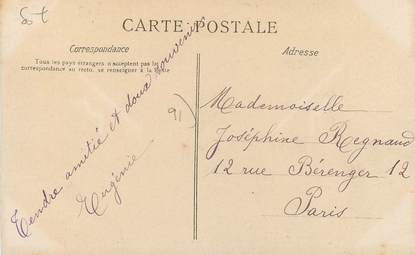 CARTE POSTALE
Correspondance
Tous les pays étrangers n'acceptent pas la
correspondance au recto, se renseigner à la Poste
Adresse
Tendre amitié et doux souvenirs
Eugénie
91)
Mademoiselle
Joséphine Regnaud
12 rue Bérenger 12
Paris